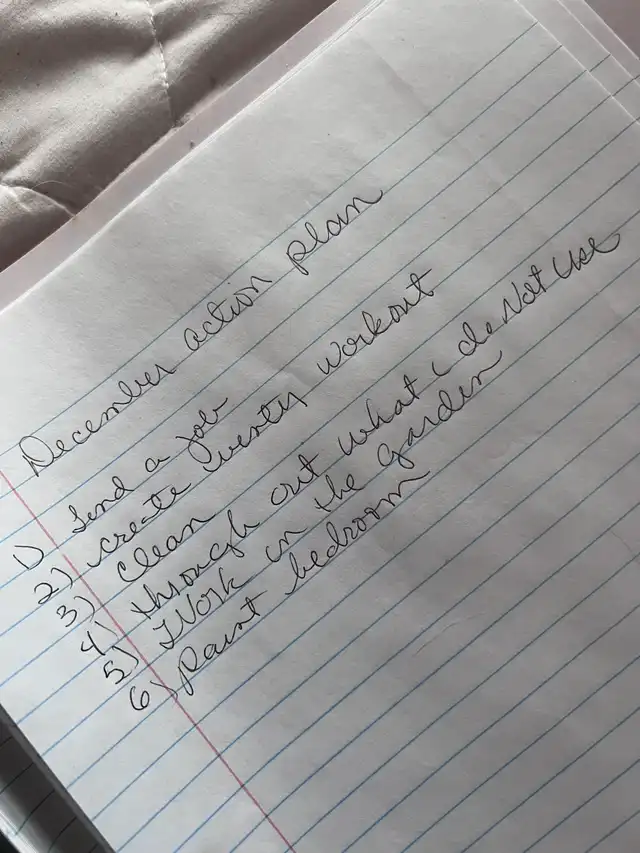 December action plan
1) Find a job
2) create twenty workout
3) clean
4) through out what i do Not use
5) Work in the garden
6) paint bedroom